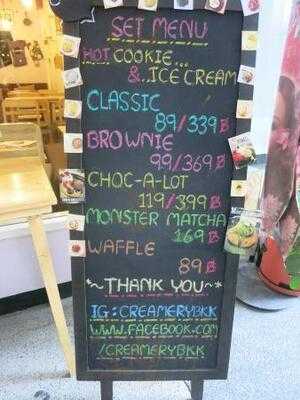 SET MENU
HOT COOKIE...
& ICE CREAM
CLASSIC
89/339฿
BROWNIE
99/369฿
CHOC-A-LOT
119/399฿
MONSTER MATCHA
169฿
WAFFLE
89฿
*~THANK YOU~*
IG:CREAMERYBKK
WWW.FACEBOOK.COM
/CREAMERYBKK